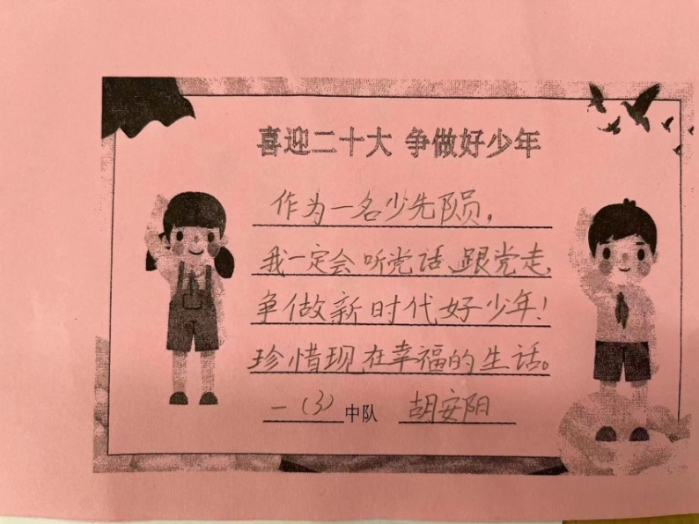 喜迎二十大 争做好少年
作为一名少先队员，
我一定会听党话、跟党走，
争做新时代好少年！
珍惜现在幸福的生活。
一（3）中队 胡安阳